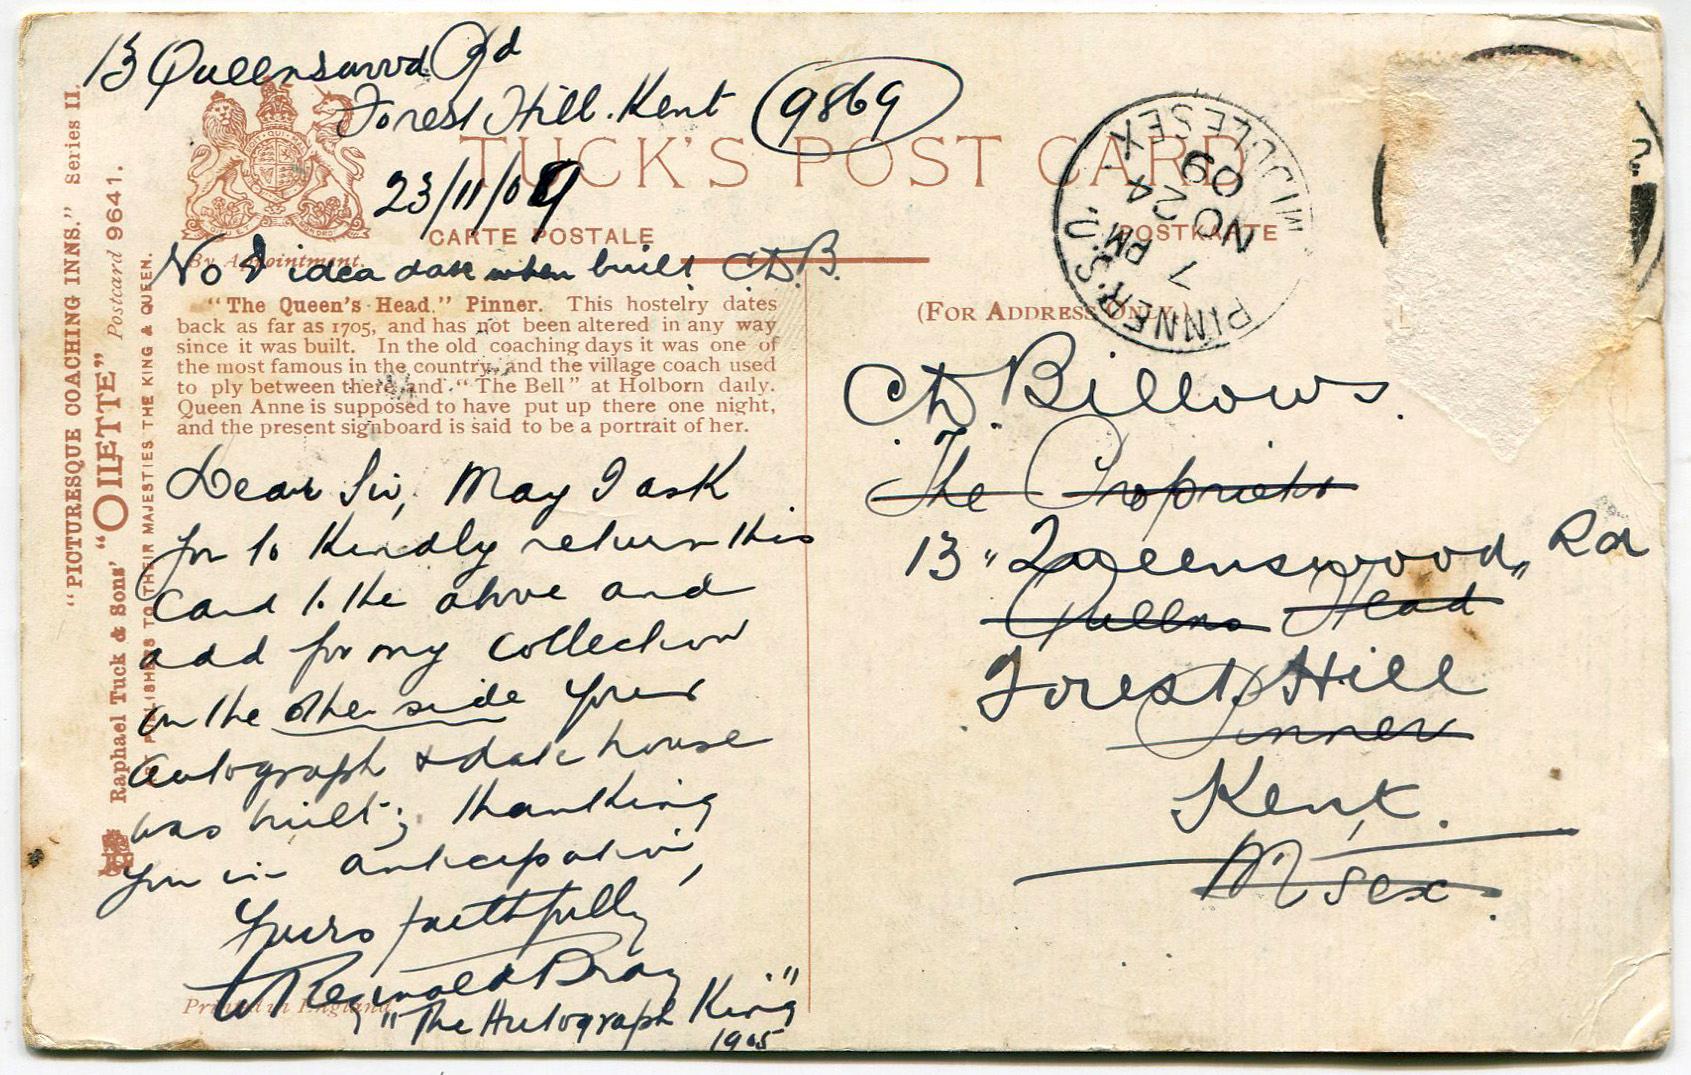 13 Queenswood Rd
Forest Hill. Kent
9869
23/11/09
TUCK'S POST CARD
CARTE POSTALE
POSTKARTE
By Appointment.
No I idea date when built CDB.
"The Queen's Head." Pinner. This hostelry dates
back as far as 1705, and has not been altered in any way
since it was built. In the old coaching days it was one of
the most famous in the country, and the village coach used
to ply between there and "The Bell" at Holborn daily.
Queen Anne is supposed to have put up there one night,
and the present signboard is said to be a portrait of her.
Dear Sir, May I ask
you to kindly return this
card to the above and
add for my collection
on the other side your
autograph & date house
was built; thanking
you in anticipation,
Yours faithfully
W Reginald Bray
"The Autograph King"
1905
Printed in England
"PICTURESQUE COACHING INNS." Series II.
Raphael Tuck & Sons' "OILETTE" Postcard 9641.
ART PUBLISHERS TO THEIR MAJESTIES THE KING & QUEEN.
PINNER S.O. MIDDLESEX.
7 PM
NO 24
09
(FOR ADDRESS ONLY.)
CD Billows.
The Proprietor
13 "Queenswood" Rd
Queens Head
Forest Hill
Pinner
Kent.
M'sex.